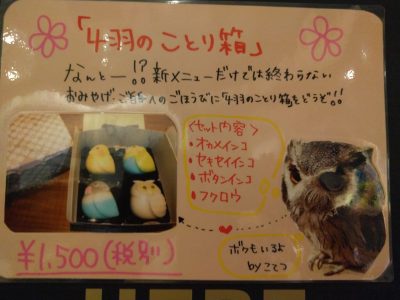 「4羽のことり箱」
なんとー!?新メニューだけでは終わらない
おみやげ・ご自分へのごほうびに4羽のことり箱をどうぞ!!
〈セット内容〉
・オカメインコ
・セキセイインコ
・ボタンインコ
・フクロウ
¥1,500(税別)
ボクもいるよ
byこてつ